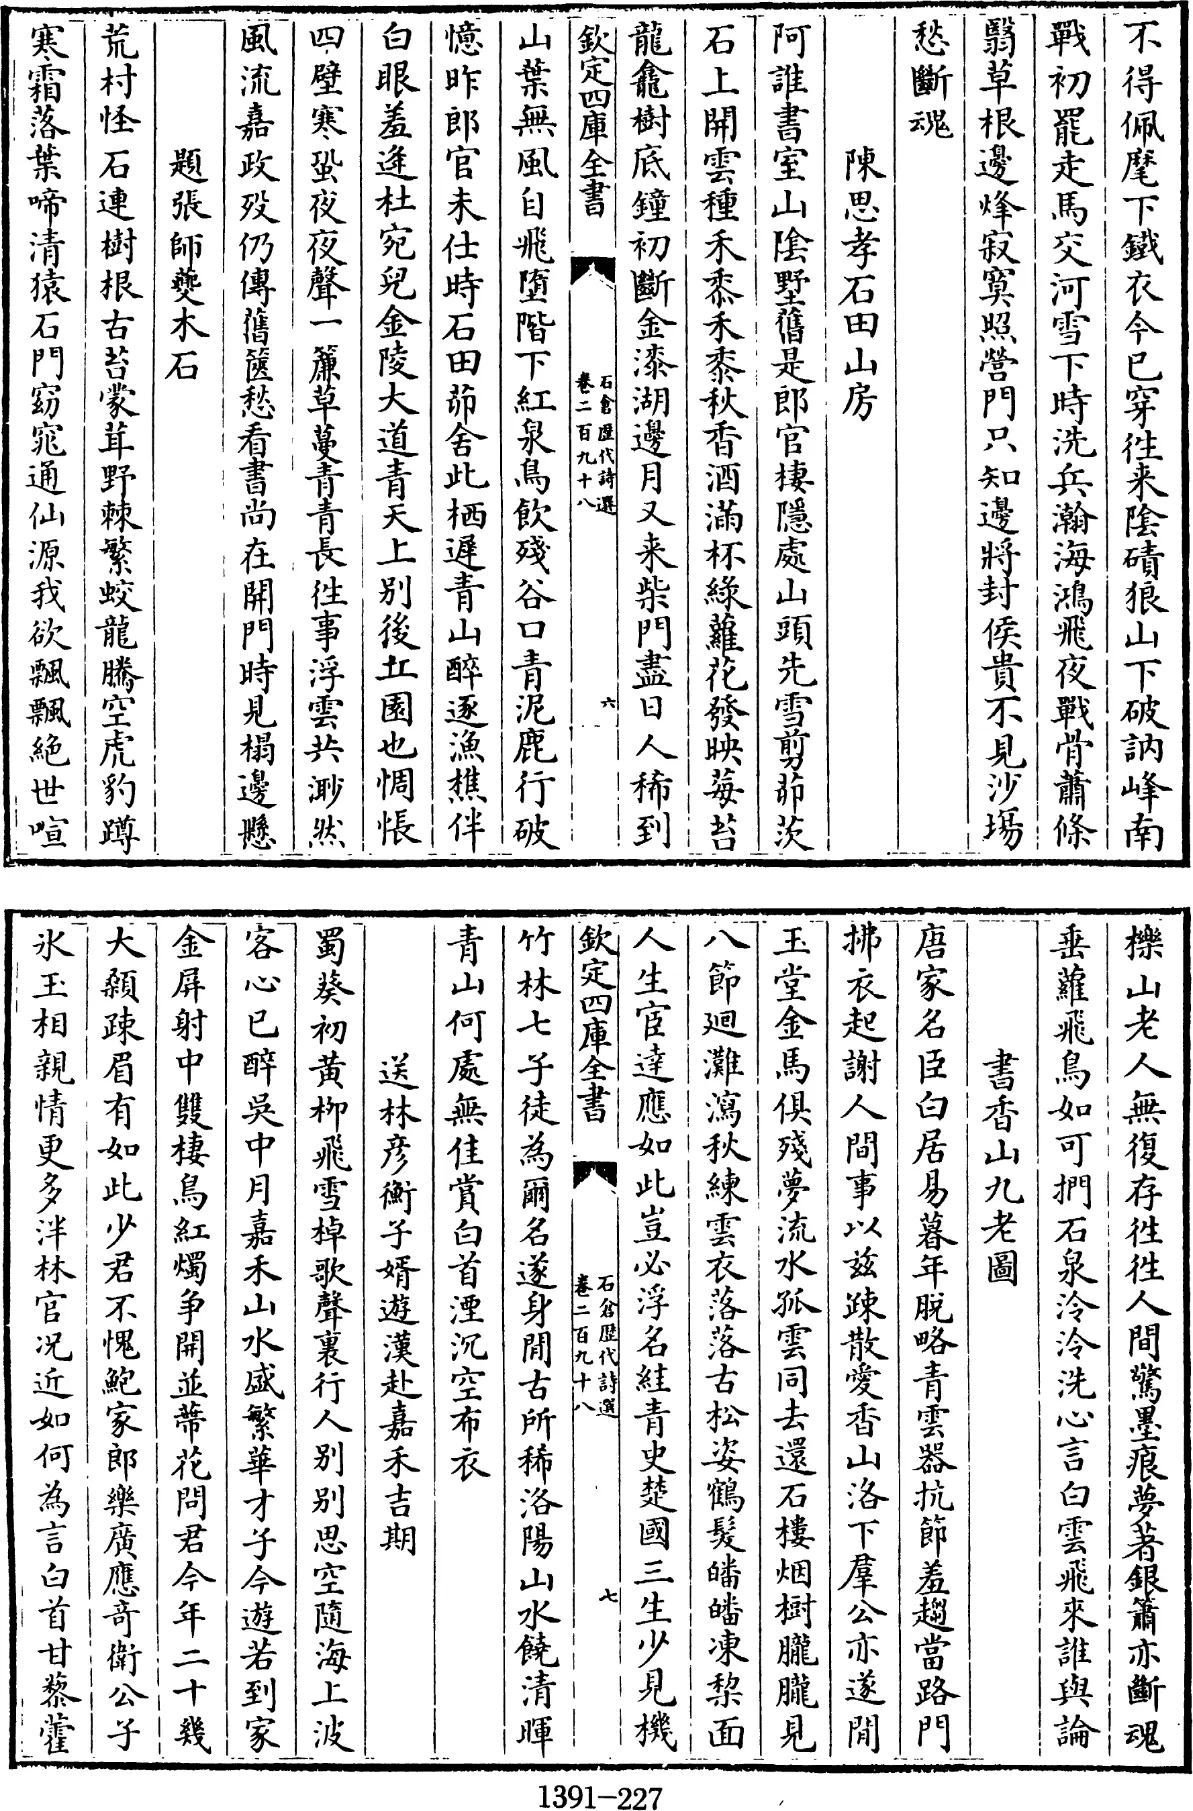 不得佩麾下鐵衣今已穿徃来陰磧狼山下破訥峰南
戰初罷走馬交河雪下時洗兵瀚海鴻飛夜戰骨蕭條
翳草根邊烽寂寞照營門只知邊將封侯貴不見沙塲
愁斷魂
陳思孝石田山房
阿誰書室山陰墅舊是郎官棲隱處山頭先雪剪茆茨
石上開雲種禾黍禾黍秋香酒滿杯緑蘿花發映莓苔
龍龕樹底鐘初斷金漆湖邊月又来柴門盡日人稀到
欽定四庫全書
石倉歴代詩選
卷二百九十八
六
山葉無風自飛墮階下紅泉鳥飲殘谷口青泥鹿行破
憶昨郎官未仕時石田茆舍此栖遲青山醉逐漁樵伴
白眼羞逄杜宛兒金陵大道青天上别後丘園也惆悵
四壁寒蛩夜夜聲一簾草蔓青青長徃事浮雲共渺然
風流嘉政歿仍傳舊篋愁看書尚在開門時見榻邊懸
題張師夔木石
荒村怪石連樹根古苔蒙茸野棘繁蛟龍騰空虎豹蹲
寒霜落葉啼清猿石門窈窕通仙源我欲飄飄絶世喧
櫟山老人無復存徃徃人間驚墨痕夢著銀簫亦斷魂
垂蘿飛鳥如可捫石泉泠泠洗心言白雲飛來誰與論
書香山九老圖
唐家名臣白居易暮年脱略青雲器抗節羞趨當路門
拂衣起謝人間事以兹踈散愛香山洛下羣公亦遂閒
玉堂金馬俱殘夢流水孤雲同去還石樓烟樹朧朧見
八節廻灘瀉秋練雲衣落落古松姿鶴髪皤皤凍梨面
人生宦達應如此豈必浮名絓青史楚國三生少見機
欽定四庫全書
石倉歴代詩選
卷二百九十八
七
竹林七子徒為爾名遂身閒古所稀洛陽山水饒清暉
青山何處無佳賞白首湮沉空布衣
送林彦衡子婿遊漢赴嘉禾吉期
蜀葵初黄柳飛雪棹歌聲裏行人别别思空隨海上波
客心已醉吴中月嘉禾山水盛繁華才子今遊若到家
金屏射中雙棲鳥紅燭争開並蔕花問君今年二十幾
大顙踈眉有如此少君不愧鮑家郎樂廣應竒衛公子
氷玉相親情更多泮林官况近如何為言白首甘藜藿
1391-227